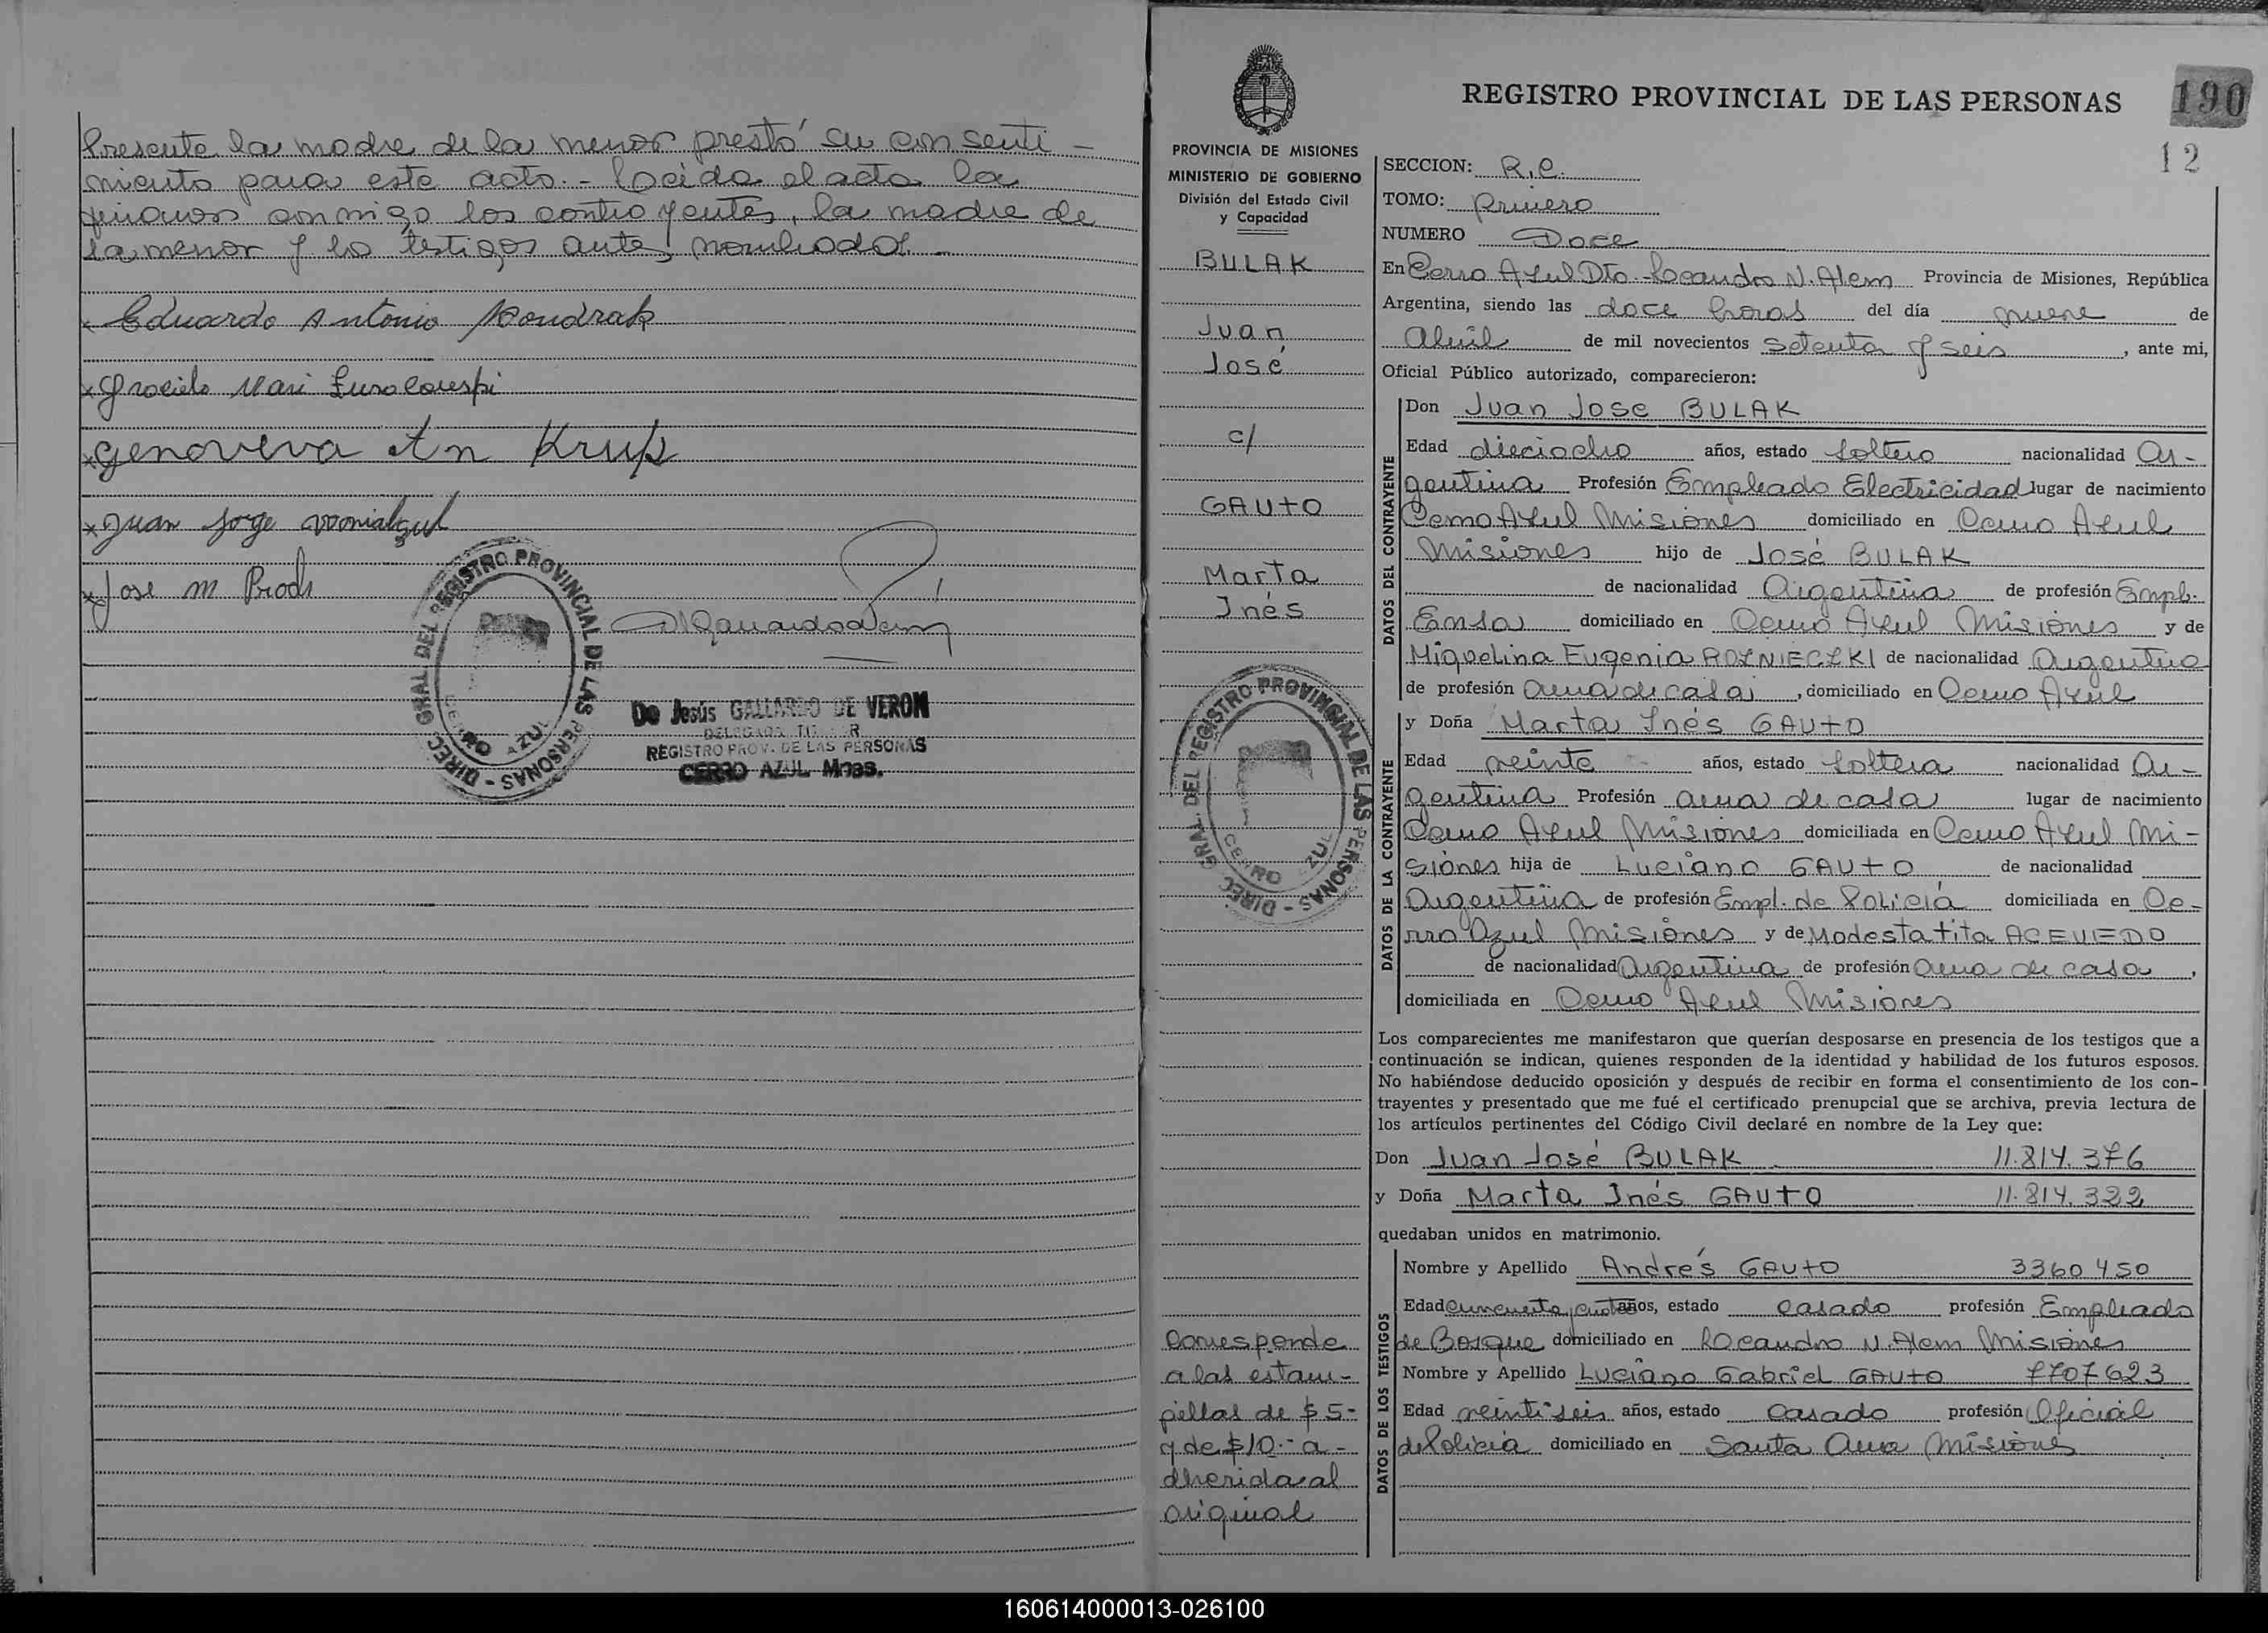 Presente la madre de la menor prestó su consenti-
miento para este acto.- Leída el acta la
firman conmigo los contrayentes, la madre de
la menor y los testigos antes nombrados.-
x Eduardo Antonio Kondrak
x Graciela Mari
x genoveva An Krup
x Juan Jorge
x Jose M Prods
DIREC. GRAL. DEL REGISTRO PROVINCIAL DE LAS PERSONAS -
CERRO AZUL
De Jesús GALLARDO DE VERON
REGISTRO PROV. DE LAS PERSONAS
CERRO AZUL Mnes.
PROVINCIA DE MISIONES
MINISTERIO DE GOBIERNO
División del Estado Civil
y Capacidad
BULAK
Juan
José
c/
GAUTO
Marta
Inés
DIREC. GRAL. DEL REGISTRO PROVINCIAL DE LAS PERSONAS -
CERRO AZUL
Corresponde
a las estam-
pillas de $5-
y de $10.- a-
dheridas al
original
REGISTRO PROVINCIAL DE LAS PERSONAS
190
12
SECCION: R.C.
TOMO: Primero
NUMERO Doce
En Cerro Azul Dto.-Leandro N. Alem Provincia de Misiones, República
Argentina, siendo las doce horas del día nueve de
Abril de mil novecientos setenta y seis, ante mi,
Oficial Público autorizado, comparecieron:
DATOS DEL CONTRAYENTE
Don Juan Jose BULAK
Edad dieciocho años, estado soltero nacionalidad Ar-
gentina Profesión Empleado Electricidad lugar de nacimiento
Cerro Azul Misiones domiciliado en Cerro Azul
Misiones hijo de José BULAK
de nacionalidad Argentina de profesión Empl.
Emsa domiciliado en Cerro Azul Misiones y de
Miguelina Eugenia ROZNIECZKI de nacionalidad Argentina
de profesión ama de casa, domiciliado en Cerro Azul
DATOS DE LA CONTRAYENTE
y Doña Marta Inés GAUTO
Edad veinte años, estado soltera nacionalidad Ar-
gentina Profesión ama de casa lugar de nacimiento
Cerro Azul Misiones domiciliada en Cerro Azul Mi-
siones hija de Luciano GAUTO de nacionalidad
Argentina de profesión Empl. de Policía domiciliada en Ce-
rro Azul Misiones y de Modesta tita ACEVEDO
de nacionalidad Argentina de profesión ama de casa,
domiciliada en Cerro Azul Misiones
Los comparecientes me manifestaron que querían desposarse en presencia de los testigos que a
continuación se indican, quienes responden de la identidad y habilidad de los futuros esposos.
No habiéndose deducido oposición y después de recibir en forma el consentimiento de los con-
trayentes y presentado que me fué el certificado prenupcial que se archiva, previa lectura de
los artículos pertinentes del Código Civil declaré en nombre de la Ley que:
Don Juan José BULAK 11.814.376
y Doña Marta Inés GAUTO 11.814.322
quedaban unidos en matrimonio.
DATOS DE LOS TESTIGOS
Nombre y Apellido Andrés GAUTO 3360450
Edad cincuenta y cuatro años, estado casado profesión Empleado
de Bosque domiciliado en Leandro N. Alem Misiones
Nombre y Apellido Luciano Gabriel GAUTO 7707623
Edad veintiseis años, estado casado profesión Oficial
de Policía domiciliado en Santa Ana Misiones
160614000013-026100